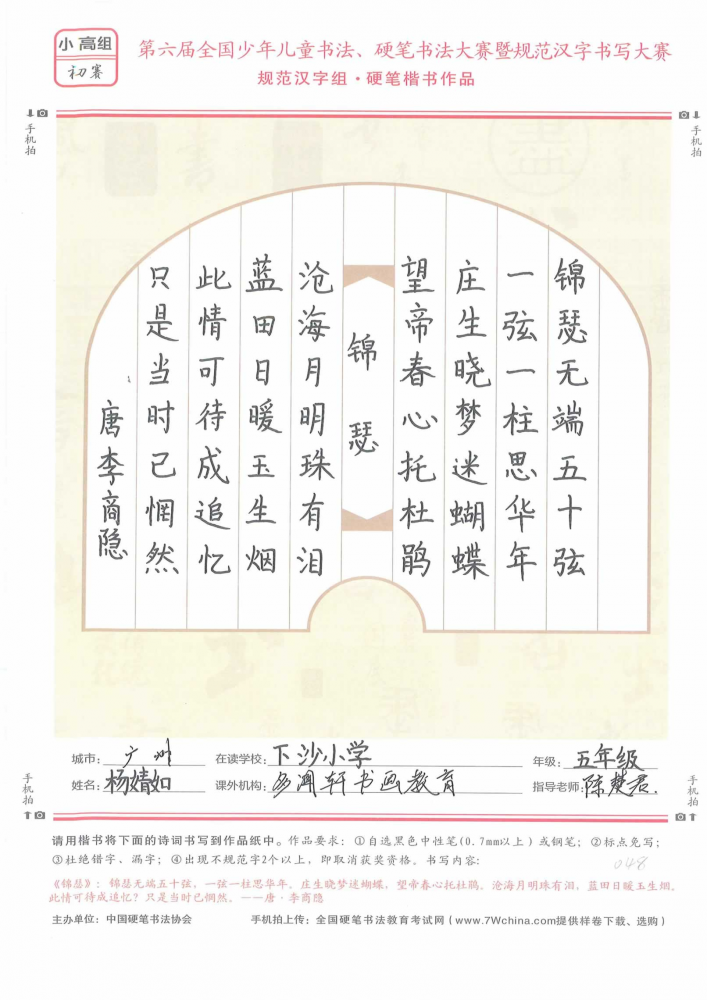 小 高组
初赛
第六届全国少年儿童书法、硬笔书法大赛暨规范汉字书写大赛
规范汉字组·硬笔楷书作品
手机拍
手机拍
锦瑟无端五十弦
一弦一柱思华年
庄生晓梦迷蝴蝶
望帝春心托杜鹃
锦瑟
沧海月明珠有泪
蓝田日暖玉生烟
此情可待成追忆
只是当时已惘然
唐李商隐
城市：广州 在读学校：下沙小学 年级：五年级
姓名：杨婧如 课外机构：多闻轩书画教育 指导老师：陈楚君.
手机拍
手机拍
请用楷书将下面的诗词书写到作品纸中。作品要求：①自选黑色中性笔(0.7mm以上）或钢笔；②标点免写；
③杜绝错字、漏字；④出现不规范字2个以上，即取消获奖资格。书写内容：
048
《锦瑟》：锦瑟无端五十弦，一弦一柱思华年。庄生晓梦迷蝴蝶，望帝春心托杜鹃。沧海月明珠有泪，蓝田日暖玉生烟。
此情可待成追忆？只是当时已惘然。——唐·李商隐
主办单位：中国硬笔书法协会 手机拍上传：全国硬笔书法教育考试网（www.7Wchina.com提供样卷下载、选购）